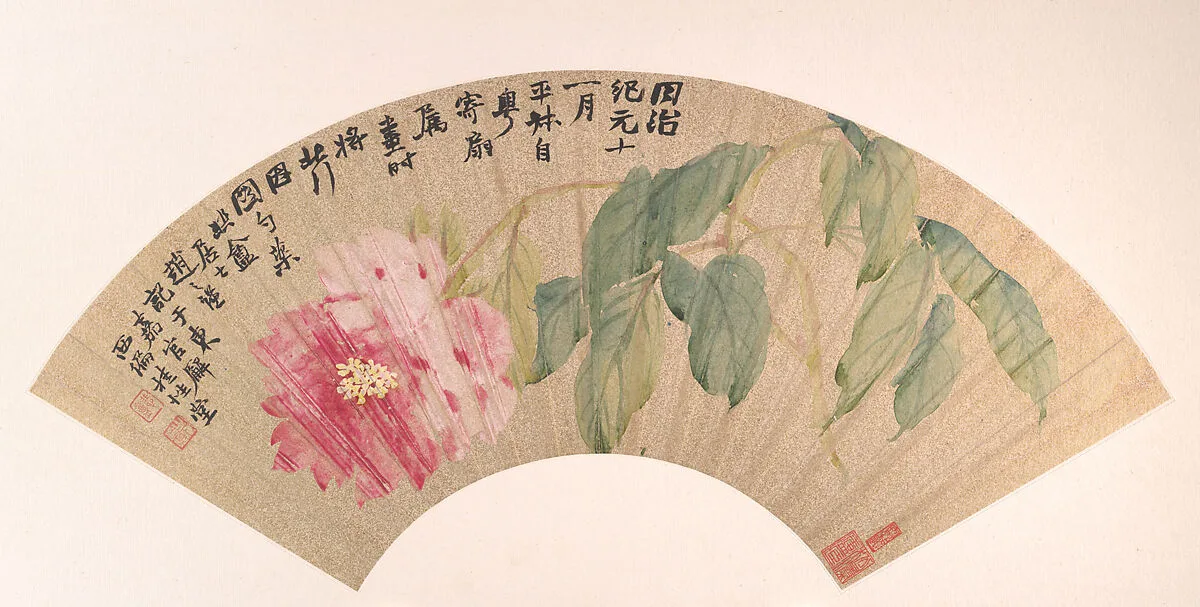 同治
紀元十
一月
平林自
粵
寄扇
屬
畫時
將
北行
因
圖勺藥
悲盦
居士
趙之謙
記于東
嘉官廨
西偏桂性堂